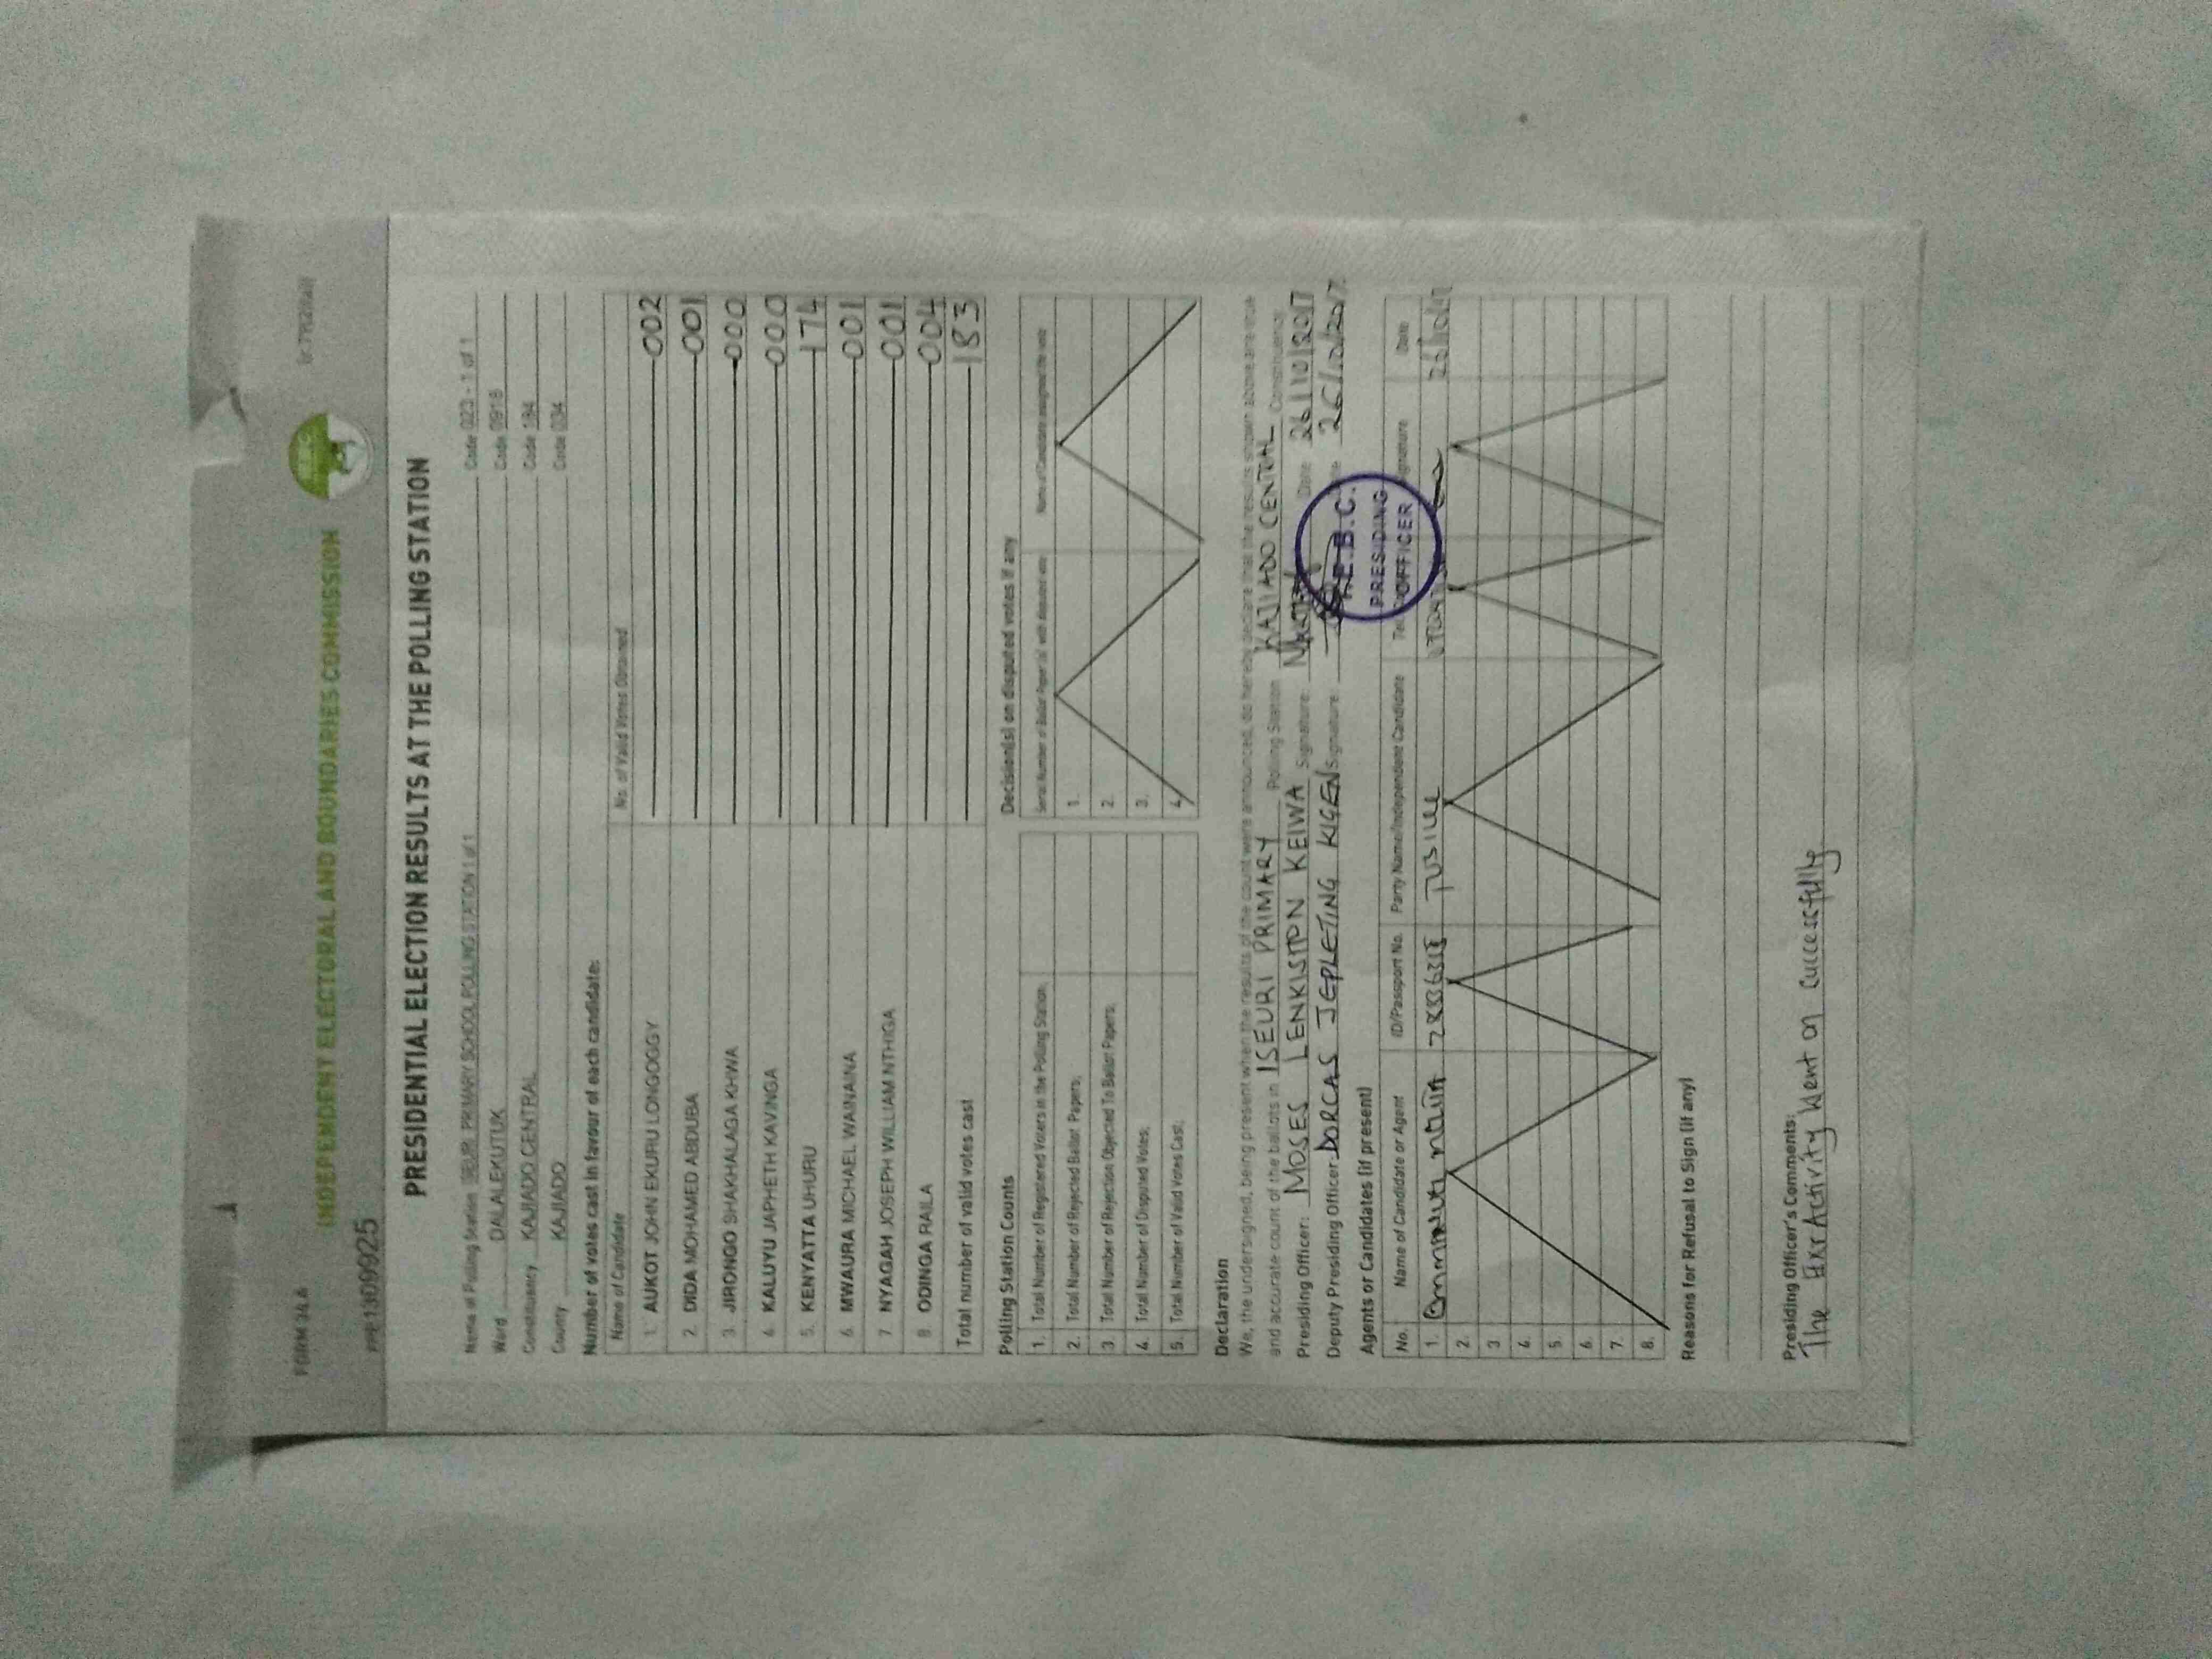 FORM 34A
INDEPENDENT ELECTORAL AND BOUNDARIES COMMISSION
PRE13099925
PRESIDENTIAL ELECTION RESULTS AT THE POLLING STATION
Name of Polling Station ISEURI PRIMARY SCHOOL POLLING STATION 1 of 1 Code 023 - 1 of 1
Ward DALALEKUTUK Code 0918
Constituency KAJIADO CENTRAL Code 184
County KAJIADO Code 034
Number of votes cast in favour of each candidate:
Name of Candidate No. of Valid Votes Obtained
1. AUKOT JOHN EKURU LONGOGGY 002
2. DIDA MOHAMED ABDUBA 001
3. JIRONGO SHAKHALAGA KHWA 000
4. KALUYU JAPHETH KAVINGA 000
5. KENYATTA UHURU 174
6. MWAURA MICHAEL WAINAINA 001
7. NYAGAH JOSEPH WILLIAM NTHIGA 001
8. ODINGA RAILA 004
Total number of valid votes cast 183
Polling Station Counts
1. Total Number of Registered Voters in the Polling Station;
2. Total Number of Rejected Ballot Papers;
3. Total Number of Rejection Objected To Ballot Papers;
4. Total Number of Disputed Votes;
5. Total Number of Valid Votes Cast;
Decision(s) on disputed votes if any
Serial Number of Ballot Paper (s) with disputed vote Name of Candidate assigned the vote
1.
2.
3.
4.
Declaration
We, the undersigned, being present when the results of the count were announced, do hereby declare that the results shown above are true
and accurate count of the ballots in ISEURI PRIMARY Polling Station KAJIADO CENTRAL Constituency
Presiding Officer: MOSES LENKISHON KEIWA Signature: Date 26/10/2017
Deputy Presiding Officer DORCAS JEPLETING KIGEN Signature: Date 26/10/2017
I.E.B.C.
PRESIDING
OFFICER
Agents or Candidates (if present)
No. Name of Candidate or Agent ID/Passport No. Party Name/Independent Candidate Signature Date
1. JUBILEE 26/10/17
2.
3.
4.
5.
6.
7.
8.
Reasons for Refusal to Sign (if any)
Presiding Officer's Comments:
The Exr Activity Went on Successfully